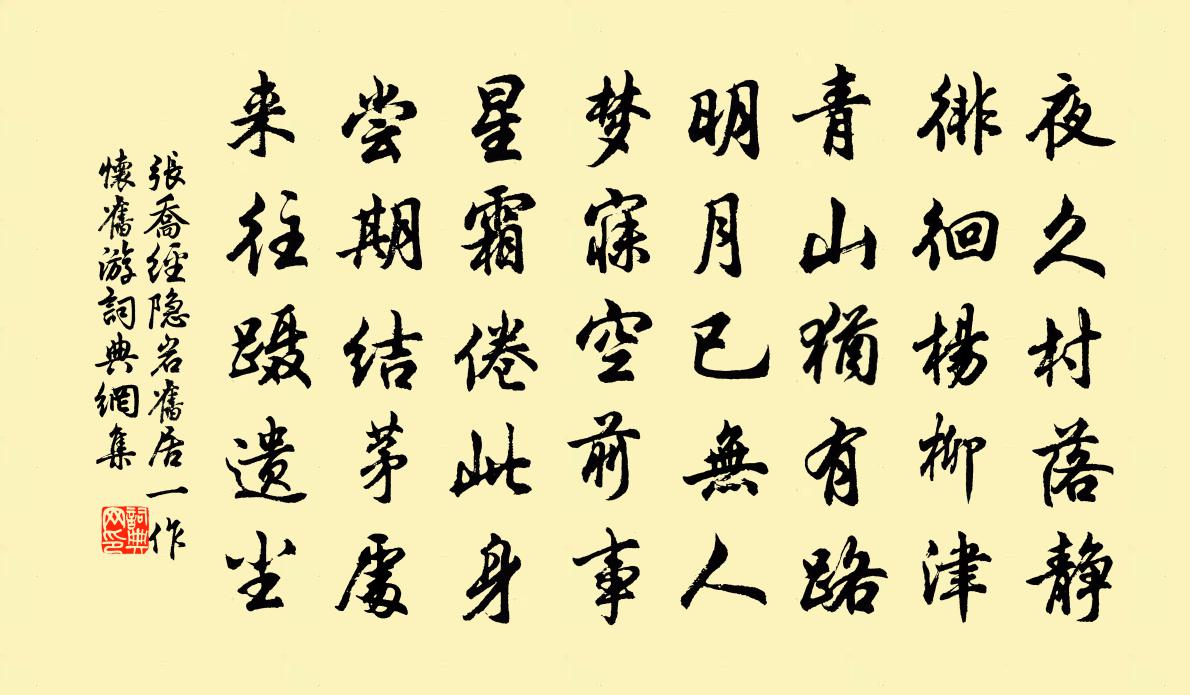 夜久村落静
徘徊楊柳津
青山猶有路
明月已無人
梦寐空前事
星霜倦此身
尝期结茅處
来往蹑遗尘
張喬經隐岩舊居一作
懷舊游詞典網集
詞典网印